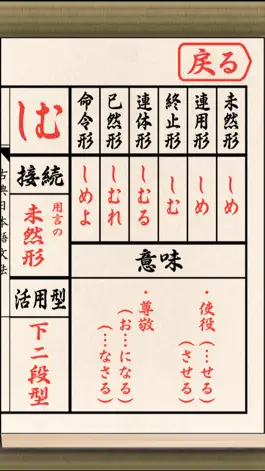 戻る
しむ
接続
用言の
未然形
活用型
下二段型
未然形
連用形
終止形
連体形
已然形
命令形
しめ
しめ
しむ
しむる
しむれ
しめよ
意味
・使役(…せる)
(させる)
・尊敬
(お…になる)
(…なさる)
古典日本語文法